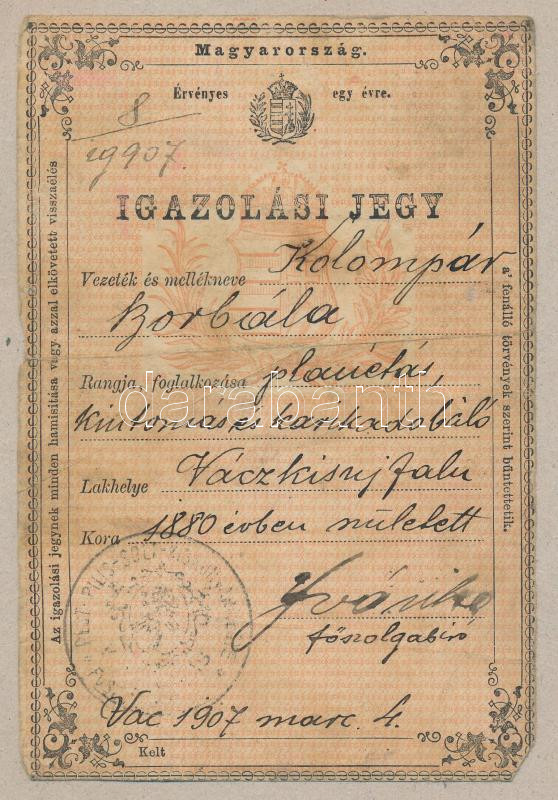 Magyarország.
Érvényes egy évre.
8
19907.
IGAZOLÁSI JEGY
Vezeték és mellékneve Kolompár
Borbála
Rangja, foglalkozása planétás,
kintornás és kártyadobáló
Lakhelye Váczkisujfalu
Kora 1880 évben született
főszolgabiró
Vác 1907 marc. 4.
Kelt
Az igazolási jegynek minden hamisítása vagy azzal elkövetett visszaélés
a' fenálló törvények szerint büntettetik.
PEST-PILIS-SOLT-
darabanth